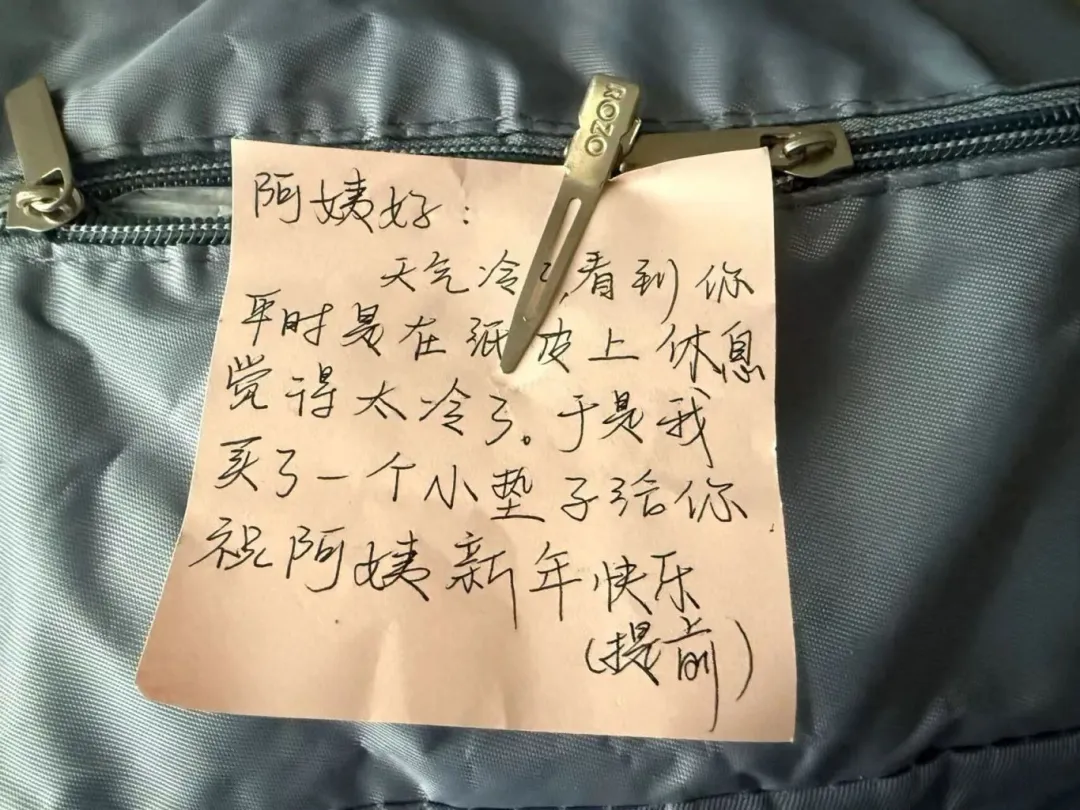 阿姨好：
天气冷了,看到你
平时是在纸皮上休息
觉得太冷了。于是我
买了一个小垫子给你
祝阿姨新年快乐
(提前)
ROZO